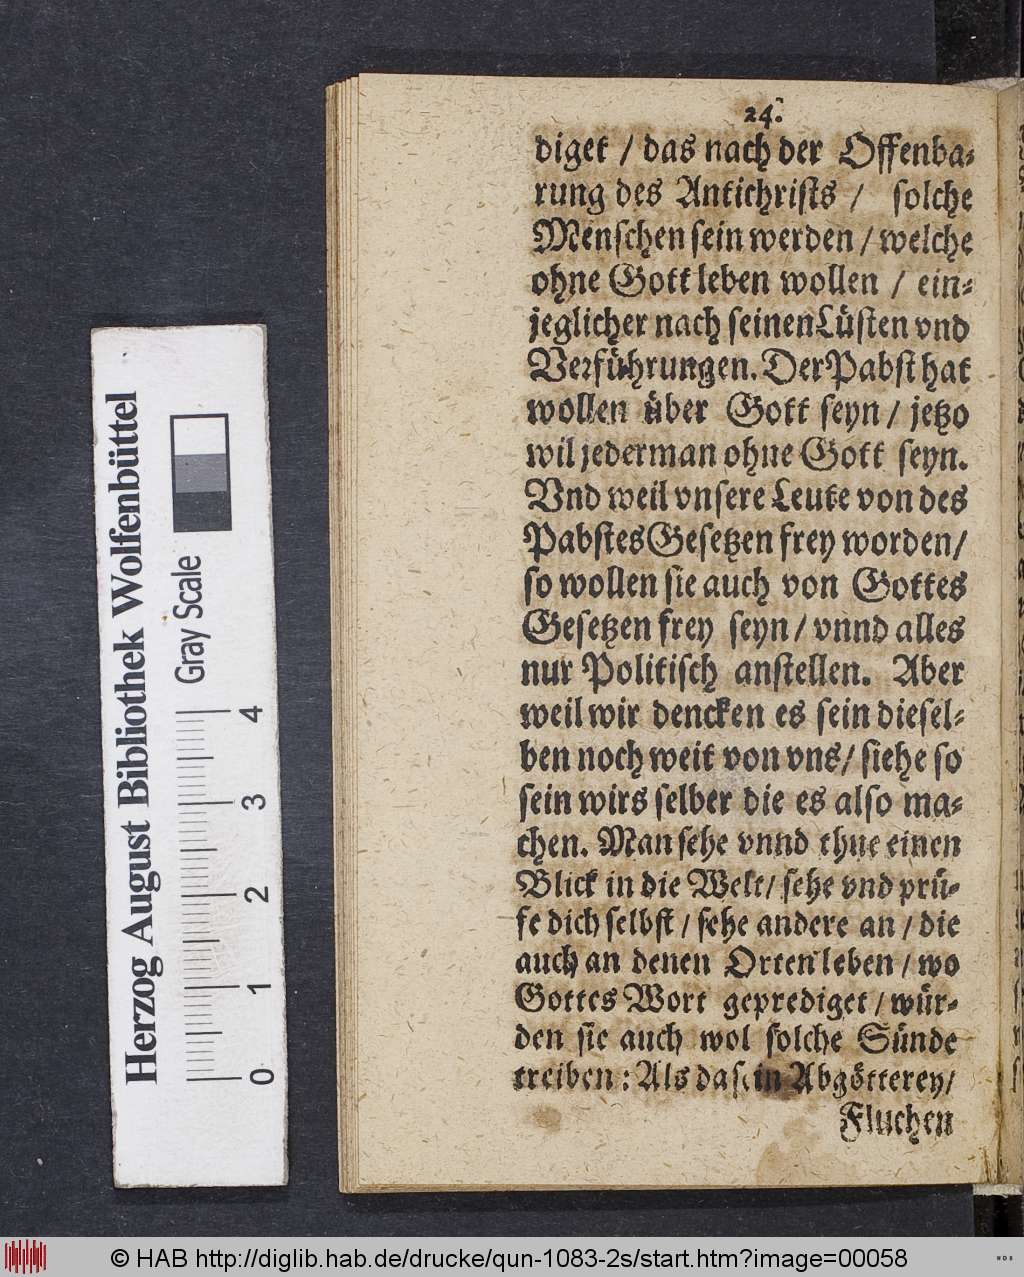 24.
diget / das nach der Offenba⸗
rung des Antichrists / solche
Menschen sein werden / welche
ohne Gott leben wollen / ein⸗
jeglicher nach seinen Lüsten vnd
Verführungen. Der Pabst hat
wollen über Gott seyn / jetzo
wil jederman ohne Gott seyn.
Vnd weil vnsere Leute von des
Pabstes Gesetzen frey worden /
so wollen sie auch von Gottes
Gesetzen frey seyn / vnnd alles
nur Politisch anstellen. Aber
weil wir dencken es sein diesel⸗
ben noch weit von vns / siehe so
sein wirs selber die es also ma⸗
chen. Man sehe vnnd thue einen
Blick in die Welt / sehe vnd prü⸗
fe dich selbst / sehe andere an / die
auch an denen Orten leben / wo
Gottes Wort geprediget / wür⸗
den sie auch wol solche Sünde
treiben : Als da sein Abgötterey /
Fluchen
Herzog August Bibliothek Wolfenbüttel
Gray Scale
0 1 2 3 4
© HAB http://diglib.hab.de/drucke/qun-1083-2s/start.htm?image=00058